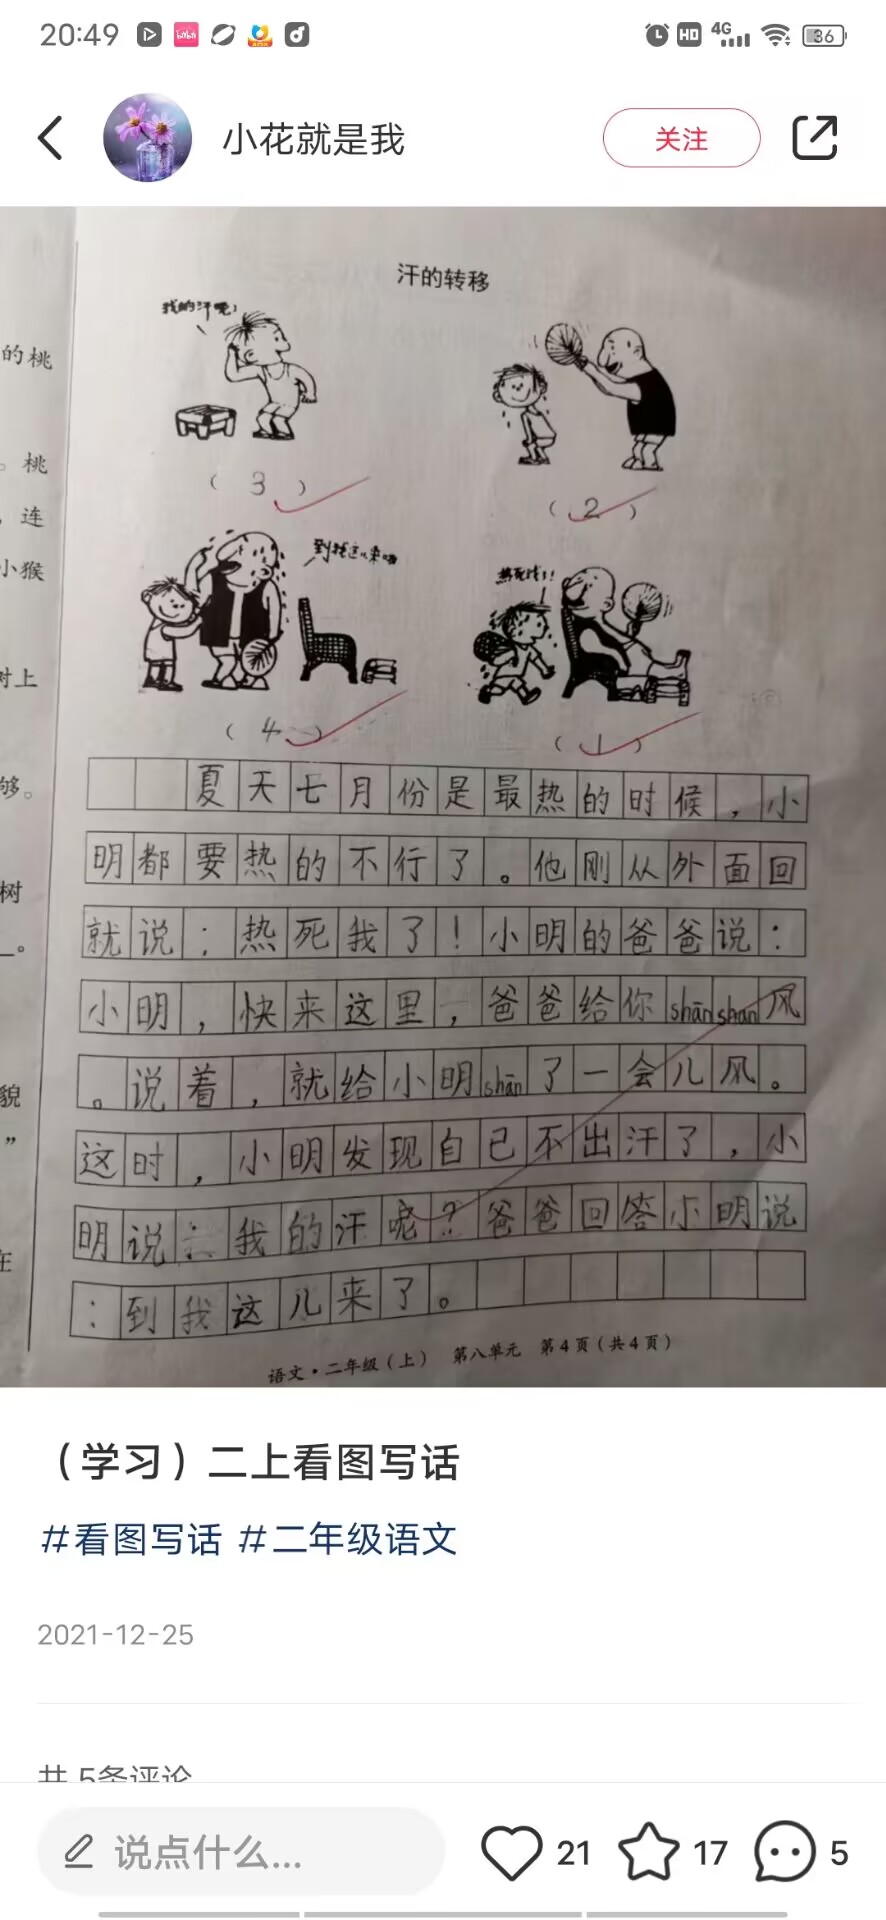 20:49
HD 4G 36
小花就是我
关注
汗的转移
我的汗呢！
的桃
（ 3 ）
（ 2 ）
。桃
，连
小猴
到我这儿来啦
热死我了！
树上
（ 4 ）
（ 1 ）
够。
夏天七月份是最热的时候，小
明都要热的不行了。他刚从外面回
树
就说：热死我了！小明的爸爸说：
。
小明，快来这里，爸爸给你shānshan风
。说着，就给小明shān了一会儿风。
貌
”
这时，小明发现自己不出汗了，小
明说：我的汗呢？爸爸回答小明说
在
：到我这儿来了。
语文·二年级（上） 第八单元 第4页（共4页）
（学习）二上看图写话
#看图写话 #二年级语文
2021-12-25
共 5条评论
说点什么...
21
17
5